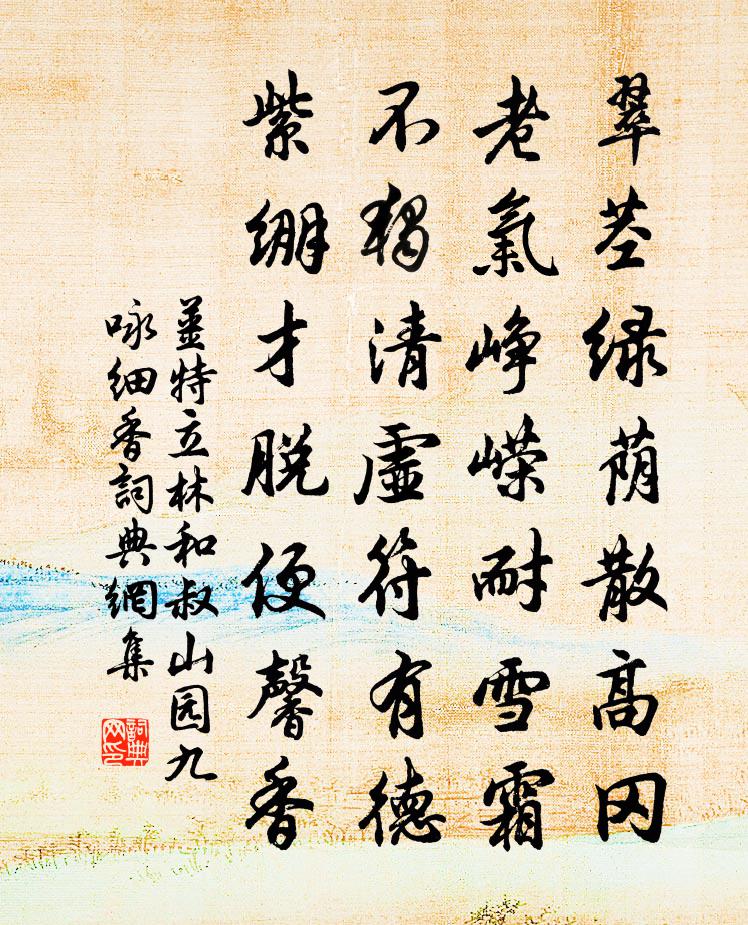 翠茎绿荫散高冈
老氣峥嵘耐雪霜
不獨清虛符有德
紫绷才脱便馨香
姜特立林和叔山园九
咏细香詞典網集
詞典网印